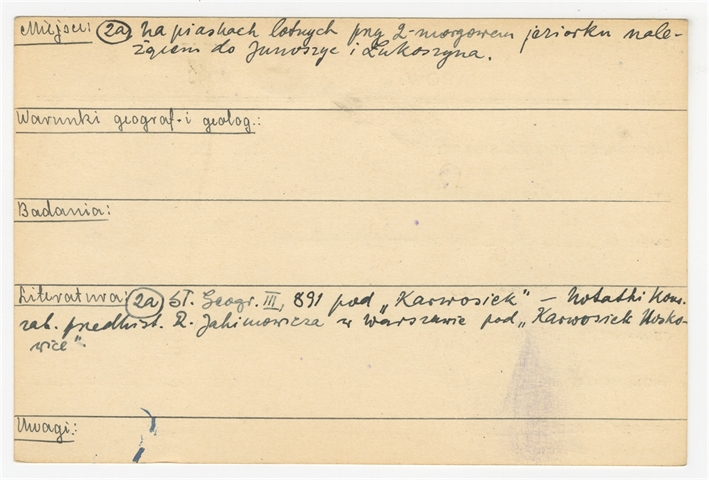 Miejsce: 2a Na piaskach lotnych przy 2-morgowem jeziorku nale-
żącem do Junoszyc i Łukoszyna.
Warunki geograf. i geolog.:
Badania:
Literatura: 2a Sł. Geogr. III, 891 pod „Karwosiek" – Notatki Kons.
zab. przedhist. R. Jakimowicza w Warszawie pod „Karwosiek Nosko-
wice".
Uwagi: